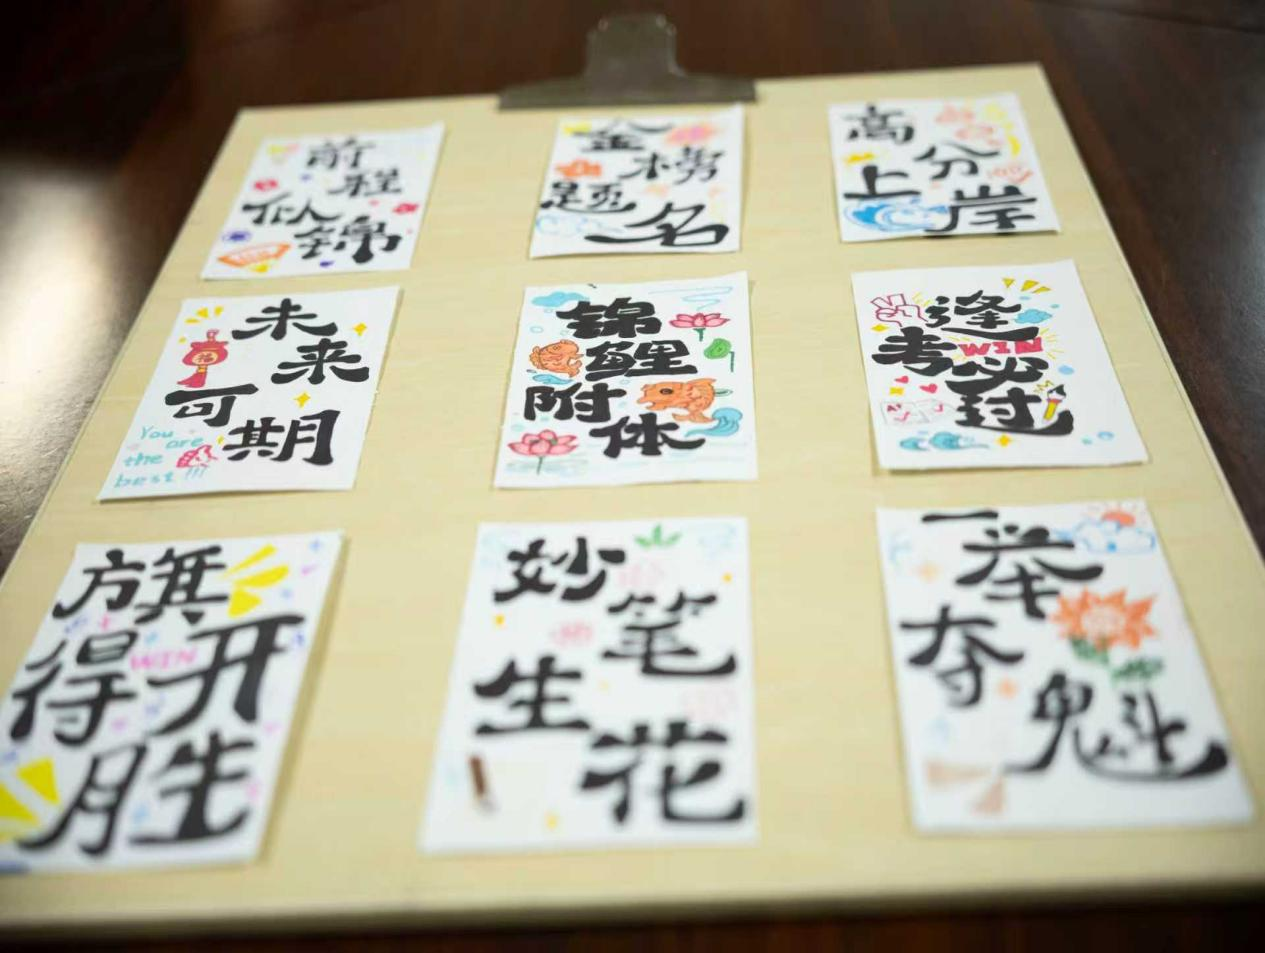 前程
似锦
金榜
题名
高分
上岸
未来
可期
You
are
the
best!!!
福
锦鲤
附体
逢
考必
过
WIN
旗开
得胜
WIN
妙笔
生花
一举
夺魁